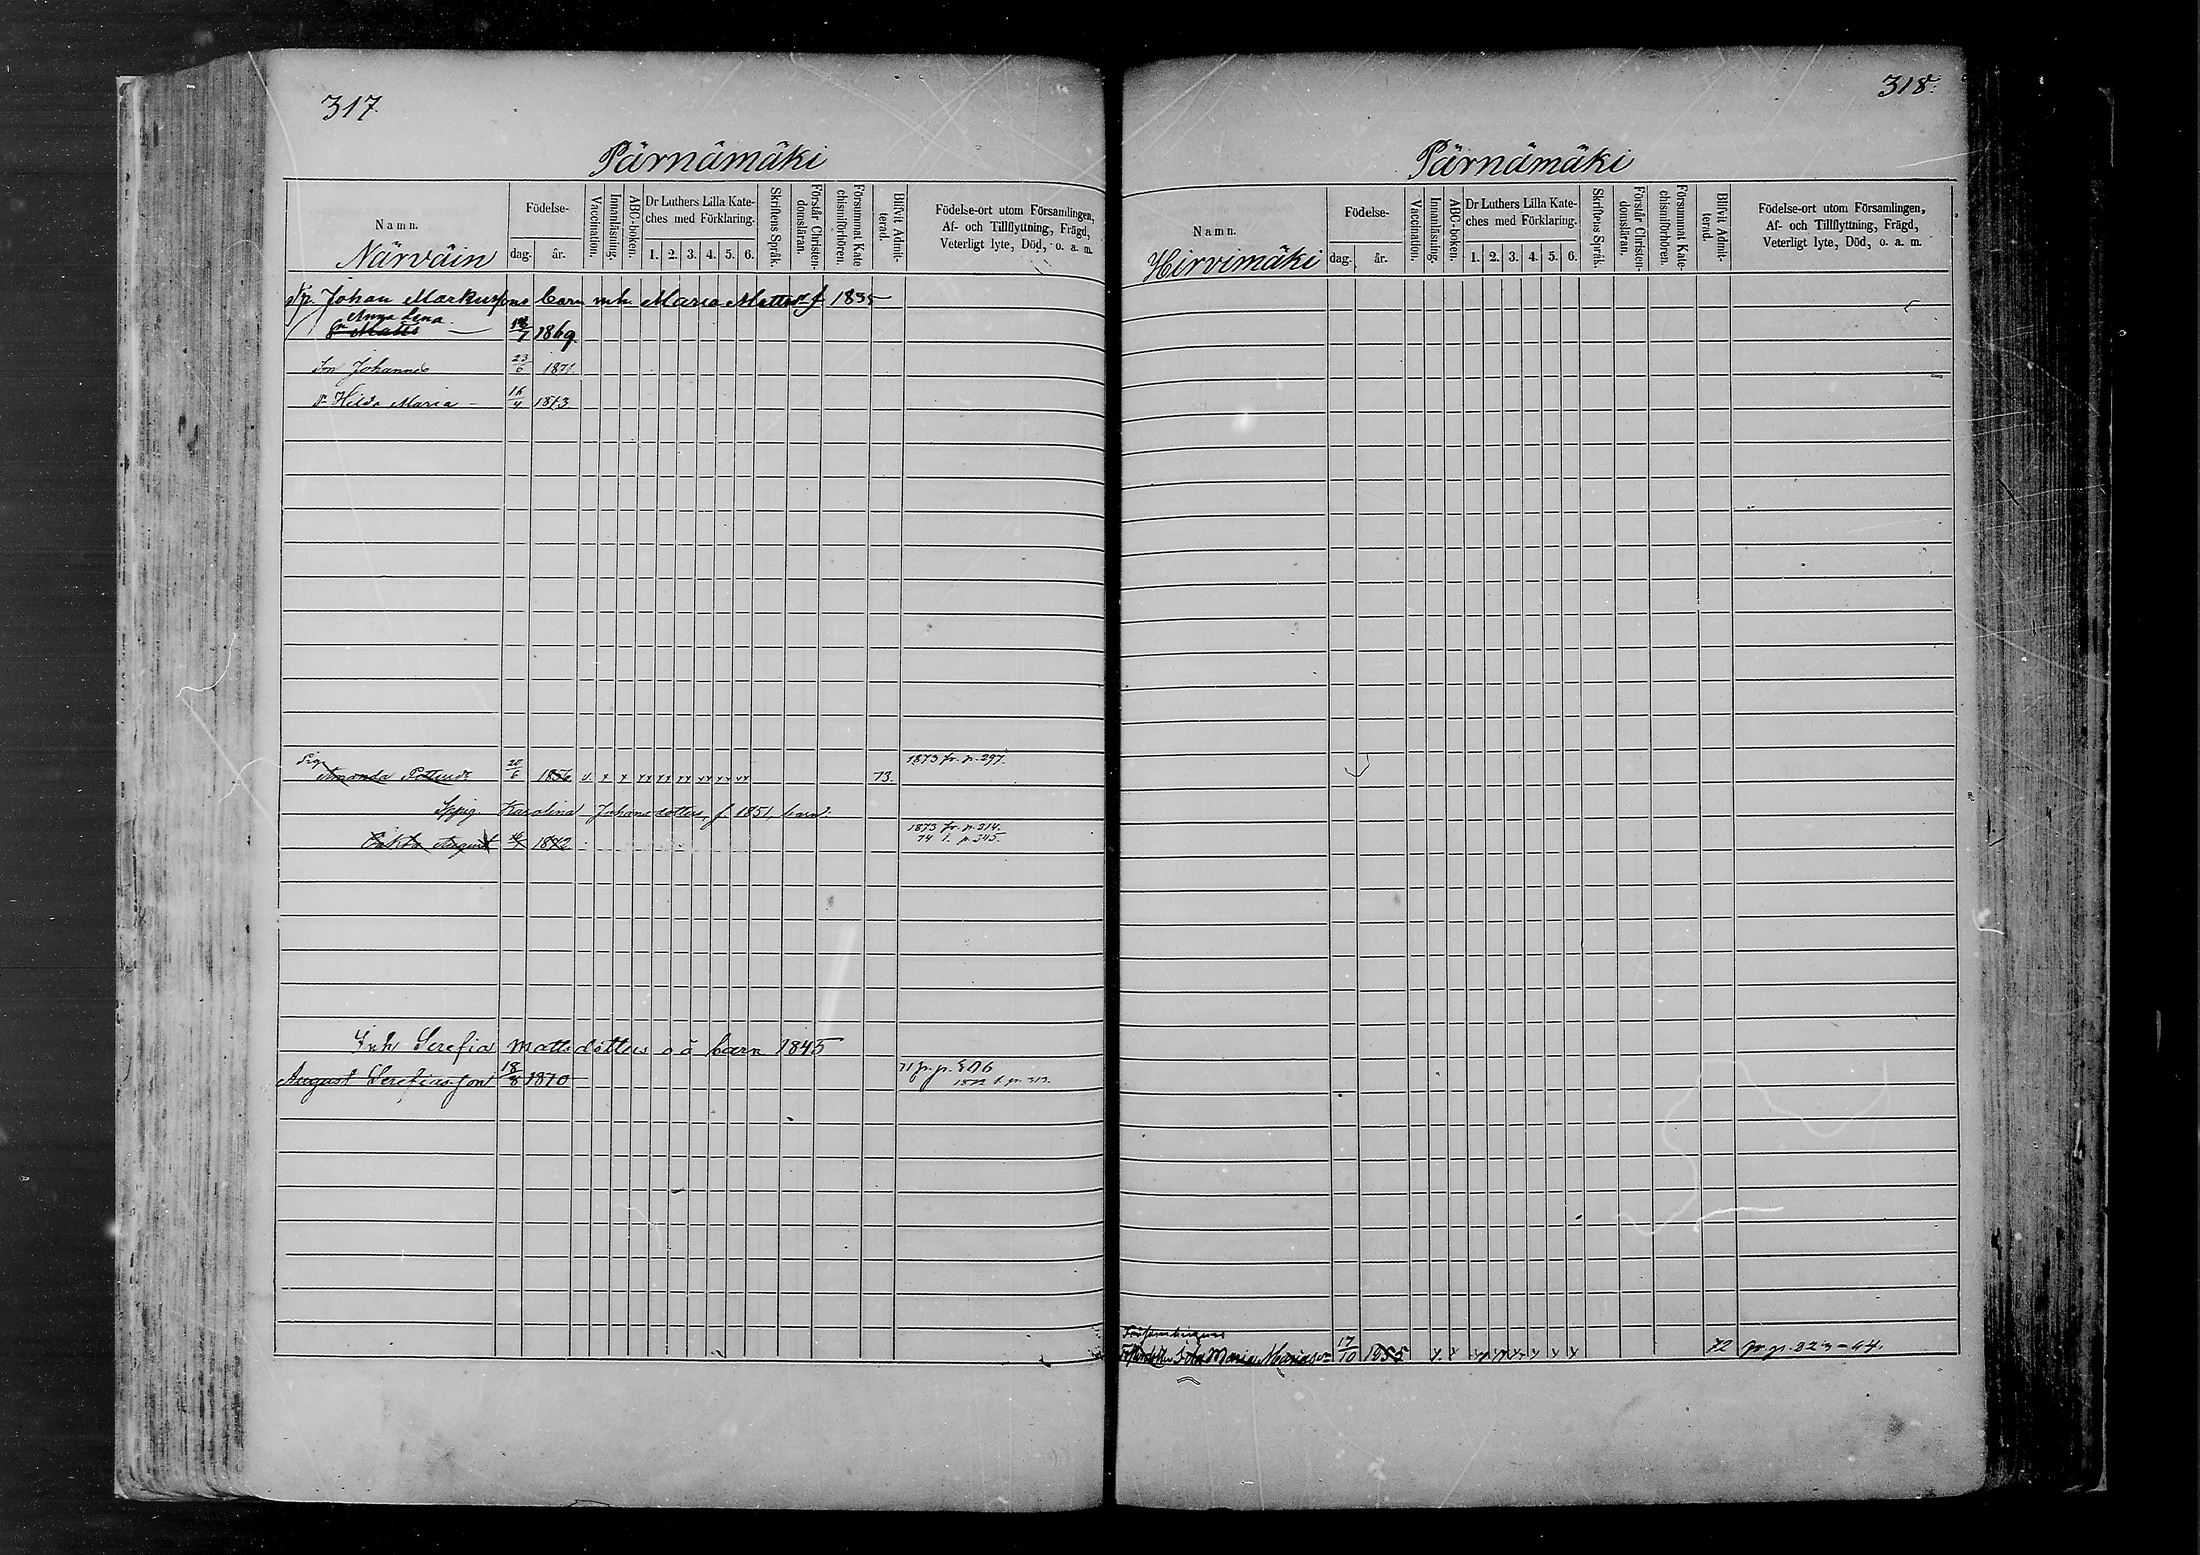 317
Pärnämäki
Namn.
Födelse-
dag.
år.
Vaccination.
Innanläsning.
ABC-boken.
Dr Luthers Lilla Kate-
ches med Förklaring.
1. 2. 3. 4. 5. 6.
Skriftens Språk.
Förstår Christen-
domsläran.
Försummat Kate
chismiförhören.
Blifvit Admit-
terad.
Födelse-ort utom Församlingen,
Af- och Tillflyttning, Frägd,
Veterligt lyte, Död, o. a. m.
Närväin
Johan Markussons barn m.h. Maria Mattsd. f 1835
Anna Lena
Matts 1869
Son Johannes 23/6 1871
Hilda Maria 16/4 1873
Amanda 20/6 1856 v x x xx xx xx xx xx xx 73. 1873 fr. p. 297.
Karolina Johansdotter, f. 1851, barn.
1873 fr. p. 314.
August 1872 74 t. p. 345.
Inh Serefia Mattsdotters o ä barn 1845
August Serefiasson 18/8 1870 71 fr. p.
318.
Pärnämäki
Namn.
Födelse-
dag.
år.
Vaccination.
Innanläsning.
ABC-boken.
Dr Luthers Lilla Kate-
ches med Förklaring.
1. 2. 3. 4. 5. 6.
Skriftens Språk.
Förstår Christen-
domsläran.
Försummat Kate-
chismiförhören.
Blifvit Admit-
terad.
Födelse-ort utom Församlingen,
Af- och Tillflyttning, Frägd,
Veterligt lyte, Död, o. a. m.
Hirvimäki
Maria 17/10 1855 72 fr. p.